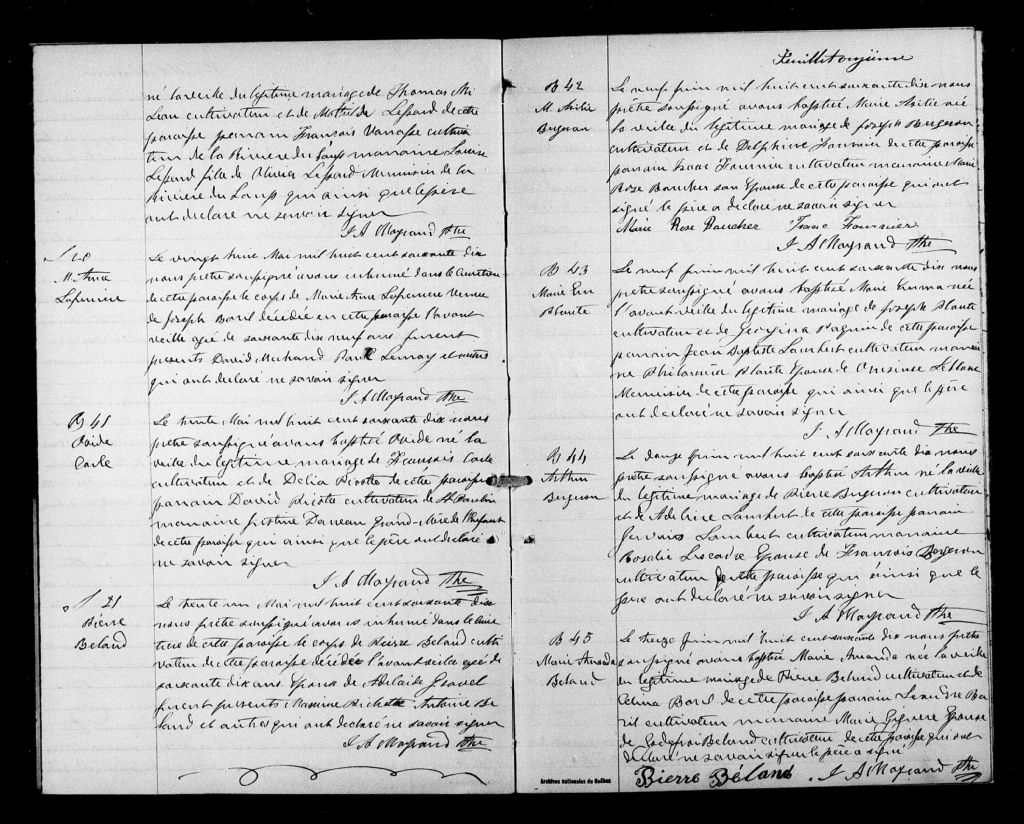 né la veille du légitime mariage de Thomas Mi
lian cultivateur et de Mathilde Lessard de cette
paroisse parrain François Vanasse cultiva
teur de la Rivière du Loup marraine Louise
Lessard fille de Olivier Lessard Menuisier de la
Rivière du Loup qui ainsi que le père
ont déclaré ne savoir signer
J A Mayrand Ptre
S 20
M. Anne
Lafrenière
Le vingt huit Mai mil huit cent soixante dix
nous prêtre soussigné avons inhumé dans le cimetière
de cette paroisse le corps de Marie Anne Lafreniere Veuve
de Joseph Baril décédée en cette paroisse l'avant
veille agée de soixante dix neuf ans furent
présents David Michaud Paul Lemay et autres
qui ont déclaré ne savoir signer
J A Mayrand Ptre
B 41
Ovide
Carle
Le trente Mai mil huit cent soixante dix nous
prêtre soussigné avons baptisé Ovide né la
veille du légitime mariage de François Carle
cultivateur et de Délia Picotte de cette paroisse
parrain David Picotte cultivateur de St Paulin
marraine Justine Daveau Grand-Mère de l'enfant
de cette paroisse qui ainsi que le père ont déclaré
ne savoir signer
J A Mayrand Ptre
S 21
Pierre
Beland
Le trente un Mai mil huit cent soixante dix
nous prêtre soussigné avons inhumé dans le cime
tière de cette paroisse le corps de Pierre Beland culti
vateur de cette paroisse décédé l'avant veille agé de
soixante dix ans Epoux de Adelaide Gravel
furent présents Maxime Pichette Antoine Be
land et autres qui ont déclaré ne savoir signer
J A Mayrand Ptre
Feuillet onzième
B 42
M. Exilie
Bergeron
Le neuf Juin mil huit cent soixante dix nous
prêtre soussigné avons baptisé Marie Exilie née
la veille du légitime mariage de Joseph Bergeron
cultivateur et de Delphine Fournier de cette paroisse
parrain Isaac Fournier cultivateur marraine Marie
Rose Boucher son Epouse de cette paroisse qui ont
signé le père a déclaré ne savoir signer
Marie Rose Boucher Isaac Fournier
J A Mayrand Ptre
B 43
Marie Em
Plante
Le neuf Juin mil huit cent soixante dix nous
prêtre soussigné avons baptisé Marie Emma née
l'avant veille du légitime mariage de Joseph Plante
cultivateur et de Georgina Paquin de cette paroisse
parrain Jean Baptiste Lambert cultivateur marrai
ne Philomène Plante Epouse de Onesime Leblanc
Menuisier de cette paroisse qui ainsi que le père
ont déclaré ne savoir signer
J. A Mayrand Ptre
B 44
Arthur
Bergeron
Le douze Juin mil huit cent soixante dix nous
prêtre soussigné avons baptisé Arthur né la veille
du légitime mariage de Pierre Bergeron cultivateur
et de Adeline Lambert de cette paroisse parrain
Gervais Lambert cultivateur marraine
Rosalie Epouse de François Bergeron
cultivateur de cette paroisse qui ainsi que le
père ont déclaré ne savoir signer
J A Mayrand Ptre
B 45
Marie Amanda
Beland
Le treize Juin mil huit cent soixante dix nous prêtre
soussigné avons baptisé Marie Amanda née la veille
du légitime mariage de Pierre Beland cultivateur et de
Célina Baril de cette paroisse parrain Ba
ril cultivateur marraine Marie Giguere Epouse
de Godefroi Beland cultivateur de cette paroisse qui ont
déclaré ne savoir signer le père a signé
Pierre Béland J. A Mayrand Ptre
Archives nationales du Québec